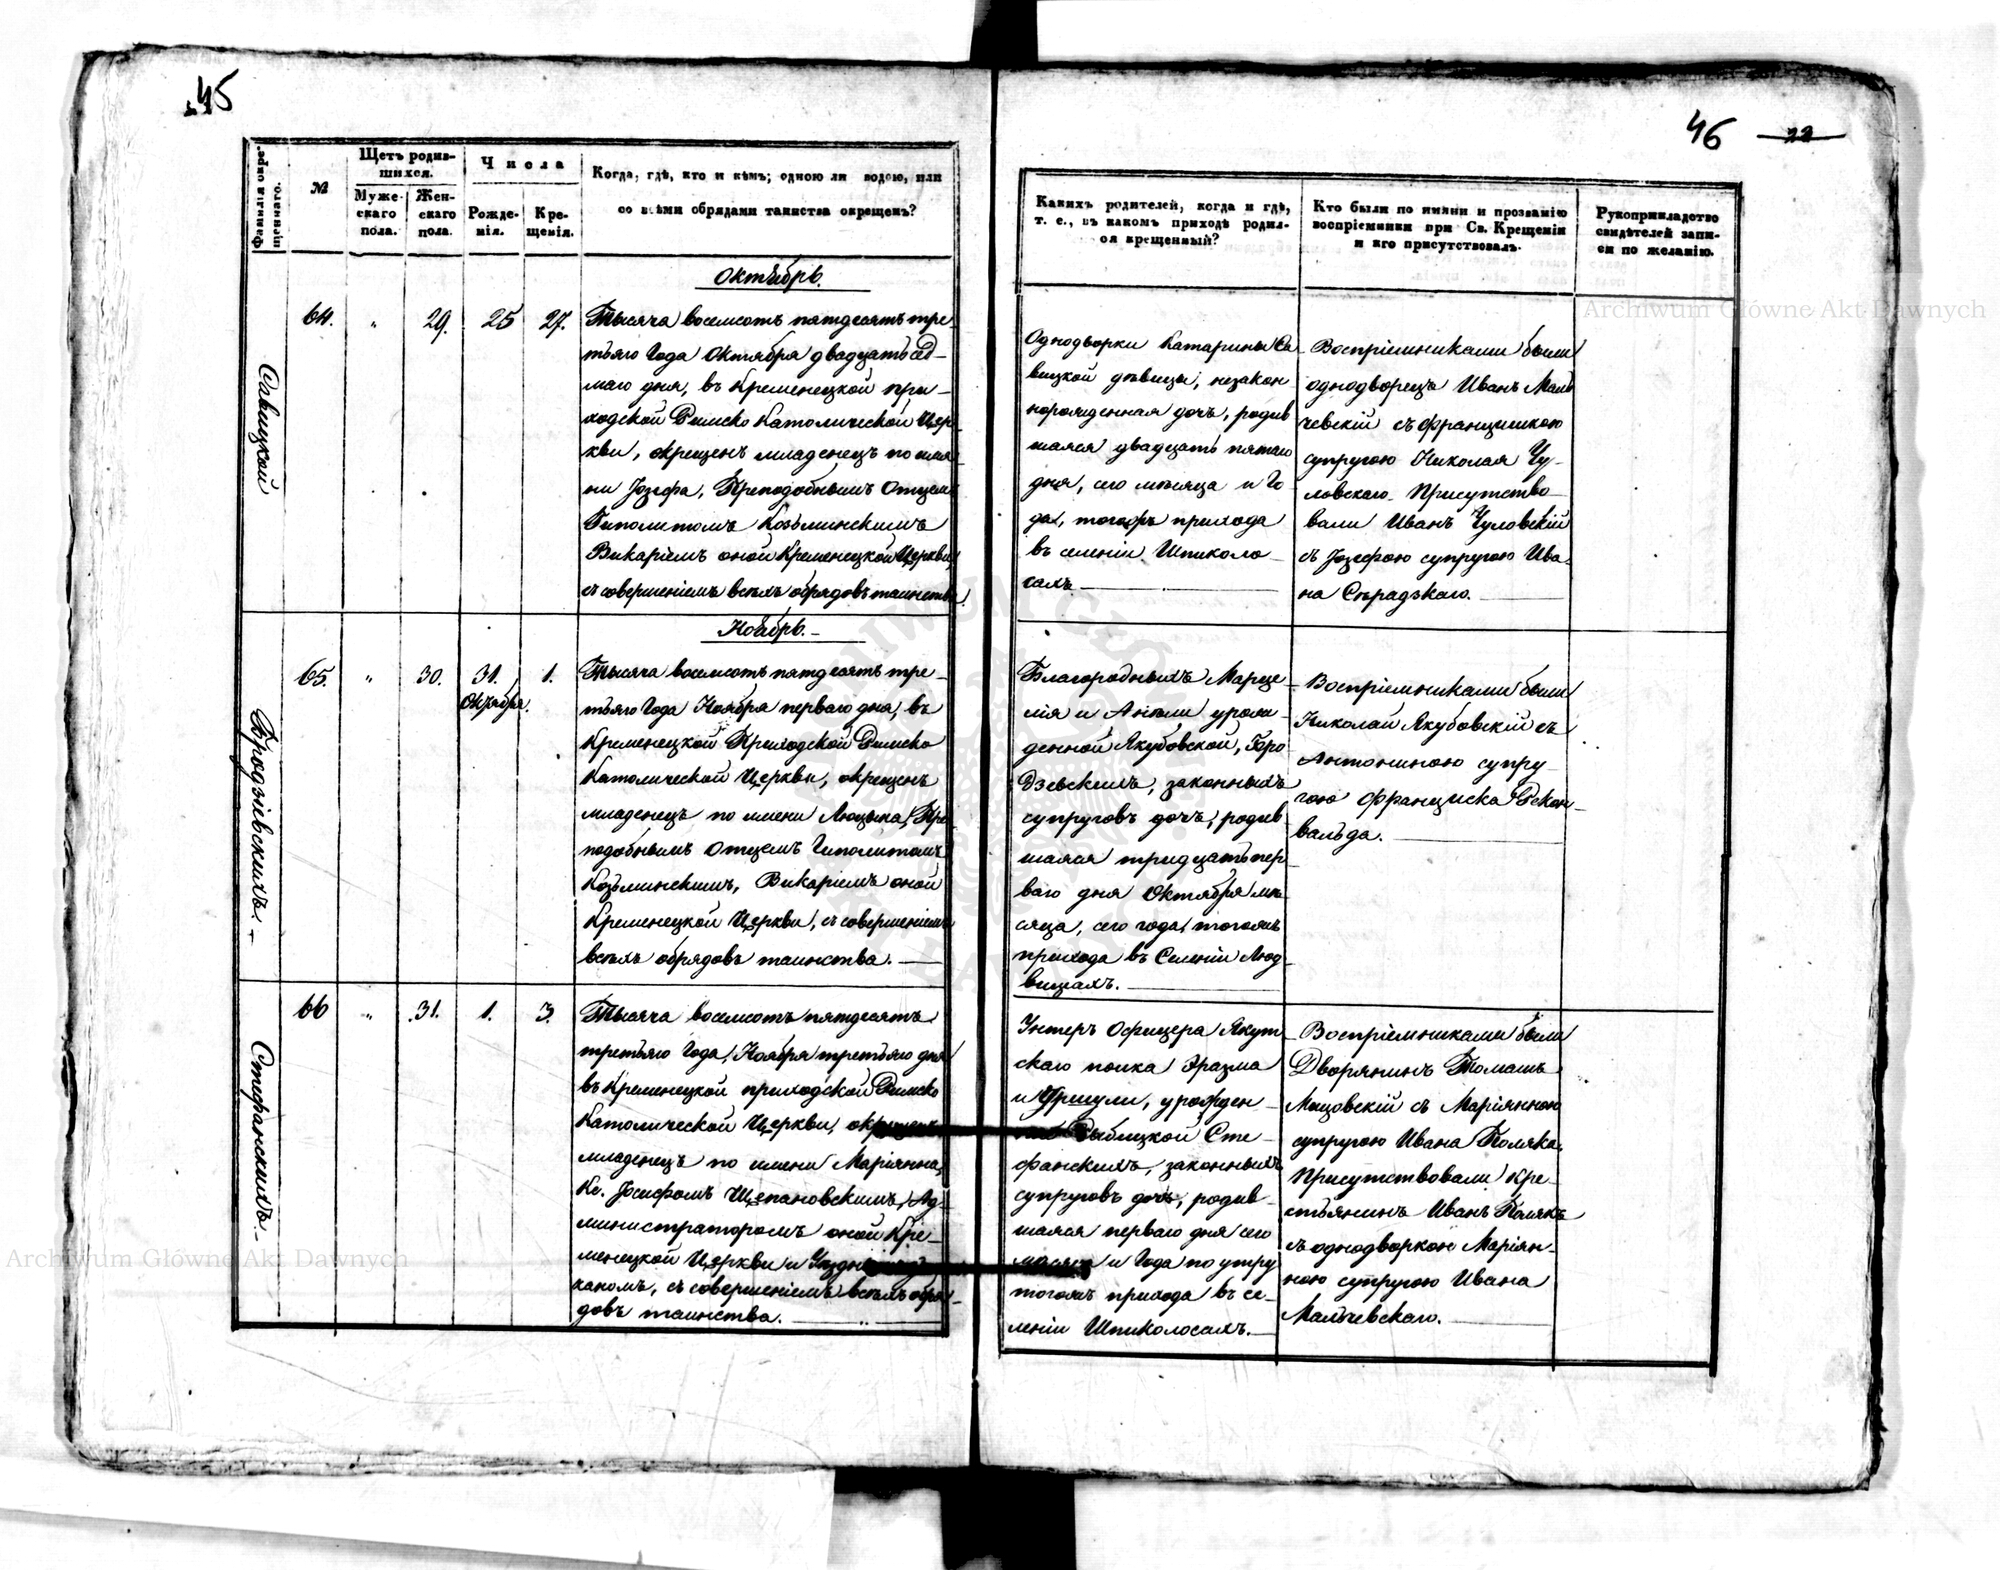 45
Фамилія окре-
щеннаго.
№
Щетъ родив-
шихся.
Муже-
скаго
пола.
Жен-
скаго
пола.
Числа
Рожде-
нія.
Кре-
щенія.
Когда, гдѣ, кто и кѣмъ; одною ли водою, или
со всѣми обрядами таинства окрещенъ?
Октябрь.
Савицкой
64.
"
29.
25
27.
Тысяча восемсотъ пятдесятъ тре-
тьяго Года Октября двадцать сед-
маго дня, въ Кременецкой при-
ходской Римско Католической Цер-
кви, окрещенъ младенецъ по име-
ни Іозефа, Преподобнымъ Отцемъ
Гиполитомъ Козьминскимъ
Викаріемъ оной Кременецкой Церкви,
съ совершеніемъ всѣхъ обрядовъ таинства.
Ноябрь.
Бродзіевскихъ.
65.
"
30.
31.
Октября.
1.
Тысяча восемсотъ пятдесятъ тре-
тьяго Года Ноября перваго дня, въ
Кременецкой Приходской Римско
Католической Церкви, окрещенъ
младенецъ по имени Люцына, Пре-
подобнымъ Отцемъ Гиполитомъ
Козьминскимъ, Викаріемъ оной
Кременецкой Церкви, съ совершеніемъ
всѣхъ обрядовъ таинства.
Стефанскихъ.
66
"
31.
1.
3.
Тысяча восемсотъ пятдесятъ
третьяго Года, Ноября третьяго дня
въ Кременецкой приходской Римско
Католической Церкви, окрещенъ
младенецъ по имени Маріянна,
Кс. Іосифомъ Щепановскимъ, Ад-
министраторомъ оной Кре-
менецкой Церкви и
каномъ, съ совершеніемъ всѣхъ обря-
довъ таинства.
46
22
Какихъ родителей, когда и гдѣ,
т. е., въ какомъ приходѣ родил-
ся крещенный?
Кто были по имяни и прозванію
воспріемники при Св. Крещеніи
и кто присутствовалъ.
Рукоприкладство
свидѣтелей запи-
си по желанію.
Однодворки Катарины Са-
вицкой дѣвицы, незакон-
норожденная дочъ, родив-
шаяся двадцать пятаго
дня, сего мѣсяца и Го-
да, тогожъ прихода
въ селеніи Шпиколо-
сахъ
Воспріемниками были
однодворецъ Иванъ Маль-
чевскій съ Францишкою
супругою Николая Чу-
ловскаго. Присутство-
вали Иванъ Чуловскій
съ Іозефою супругою Ива-
на Сѣрадзкаго.
Благородныхъ Марце-
лія и Анѣли урож-
денной Якубовской, Бро-
дзѣвскихъ, законныхъ
супруговъ дочъ, родив-
шаяся тридцать пер-
ваго дня Октября мѣ-
сяца, сего года, тогожъ
прихода въ Селеніи Люд-
вищахъ.
Воспріемниками были
Николай Якубовскій съ
Антониною супру-
гою Франциска
вальда.
Унтеръ Офицера Якут-
скаго полка Эразма
и Уршули, урожден-
Рыблицкой Сте-
фанскихъ, законныхъ
супруговъ дочъ, родив-
шаяся перваго дня сего
мѣсяца и Года по утру
тогожъ прихода въ се-
леніи Шпиколосахъ.
Воспріемниками были
Дворянинъ Томашъ
Мацовскій съ Маріянною
супругою Ивана Поляка.
Присутствовали Кре-
стьянинъ Иванъ Полякъ
съ однодворкою Маріян-
ною супругою Ивана
Мальчевскаго.
Archiwum Główne Akt Dawnych
Archiwum Główne Akt Dawnych